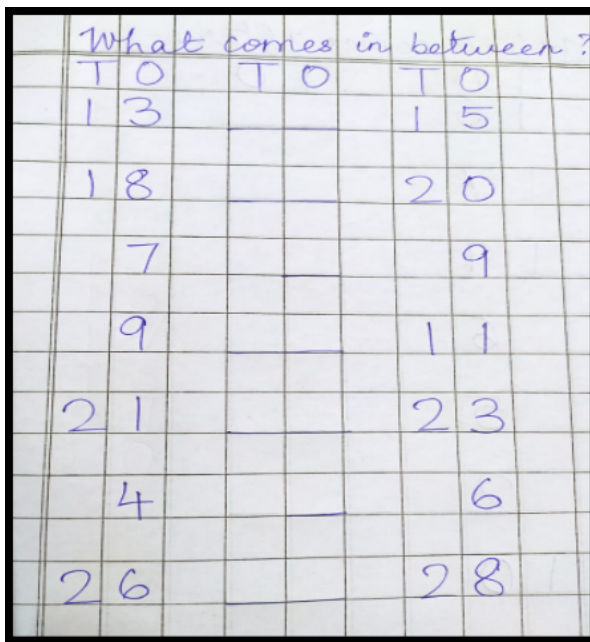 What comes in between ?
T O T O T O
13 ____ 15
18 ____ 20
7 __ 9
9 ____ 11
21 ____ 23
4 __ 6
26 ____ 28